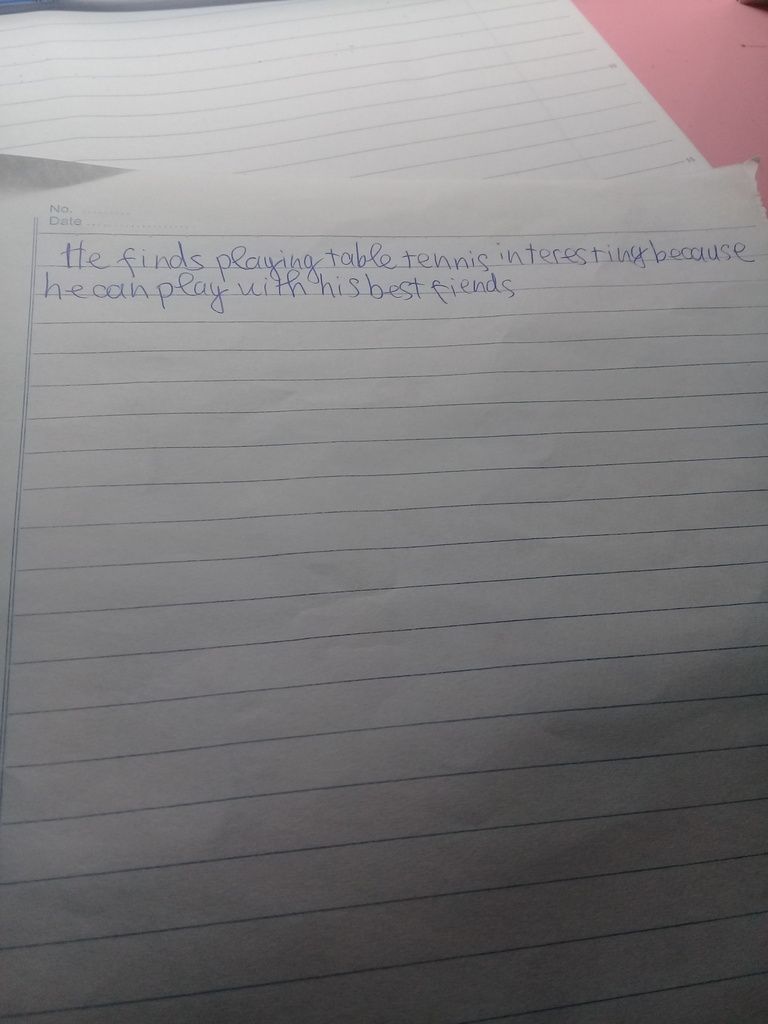 No. ............
Date ........................
He finds playing table tennis interesting because
he can play with his best fiends